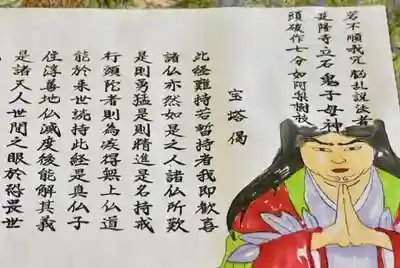 若不順我咒 脳乱説法者
是隆寺立石 鬼子母神
頭破作七分 如阿梨樹枝
宝塔偈
此経難持若暫持者我即歓喜
諸仏亦然如是之人諸仏所歎
是則勇猛是則精進是名持戒
行頭陀者則為疾得無上仏道
能於来世読持此経是真仏子
住淳善地仏滅度後能解其義
是諸天人世間之眼於恐畏世